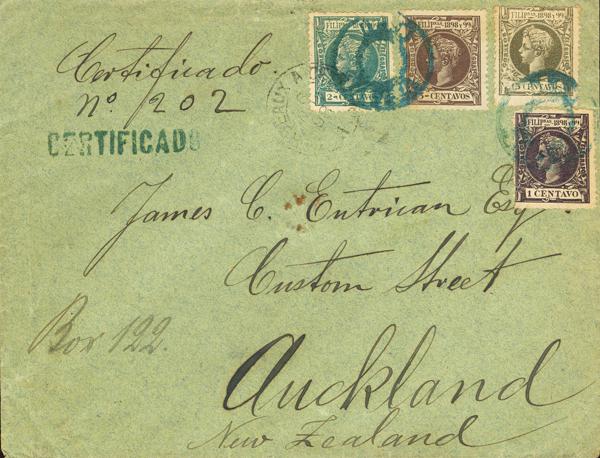 Certificado.
nº 202
CERTIFICADO
FILIPNAS 1898 Y 99
2 CENTAVOS
FILIPNAS 1898 Y 99
CENTAVOS
FILIPNAS 1898 Y 99
CENTAVOS
FILIPNAS 1898 Y 99
1 CENTAVO
James C. Entrican Esq
Custom Street
Box 122.
Auckland
New Zealand